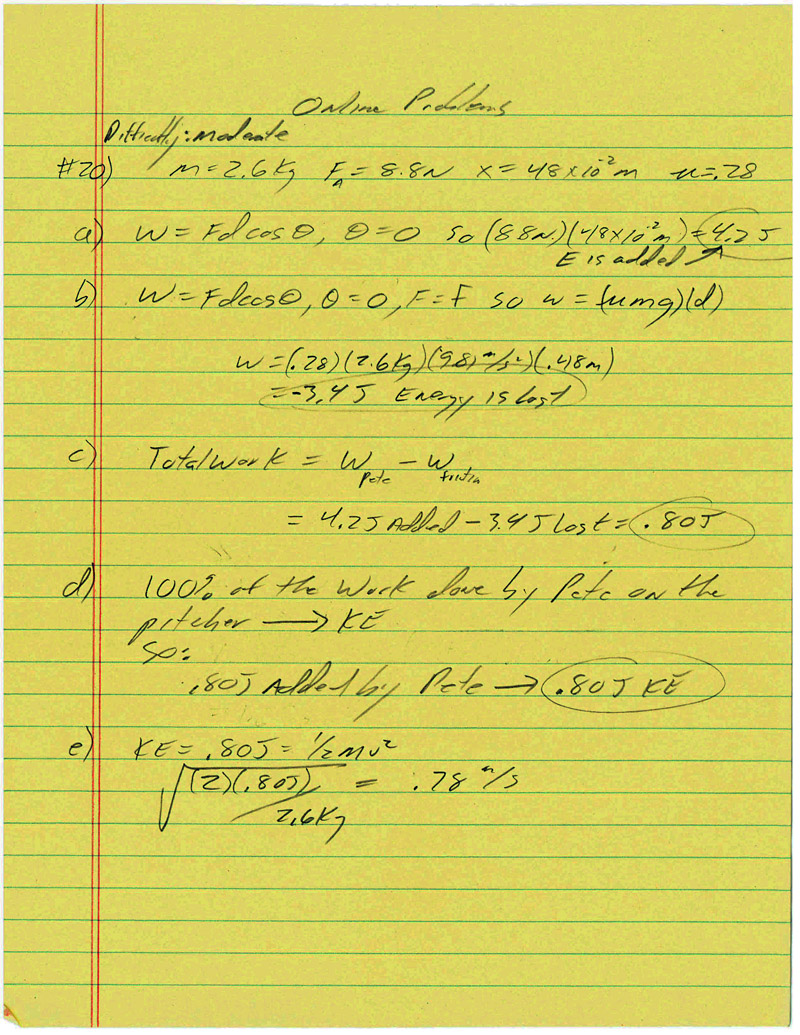 Online Problems
Difficulty: moderate
#20) m = 2.6 Kg F_A = 8.8N x = 48x10^-2 m u=.28
a) W = Fd cos θ, θ = 0 so (8.8N)(48x10^-2 m) = 4.2 J
E is added ↗
b) W = Fd cos θ, θ = 0, F = f so w = (umg)(d)
W = (.28)(2.6Kg)(9.81 m/s^2)(.48m)
= -3.4 J Energy is lost
c) Total Work = W_Pete - W_friction
= 4.2J Added - 3.4J lost = .80J
d) 100% of the Work done by Pete on the
pitcher → KE
So:
.80J Added by Pete → .80J KE
e) KE = .80J = 1/2 mv^2
√(2)(.80J)/2.6Kg = .78 m/s